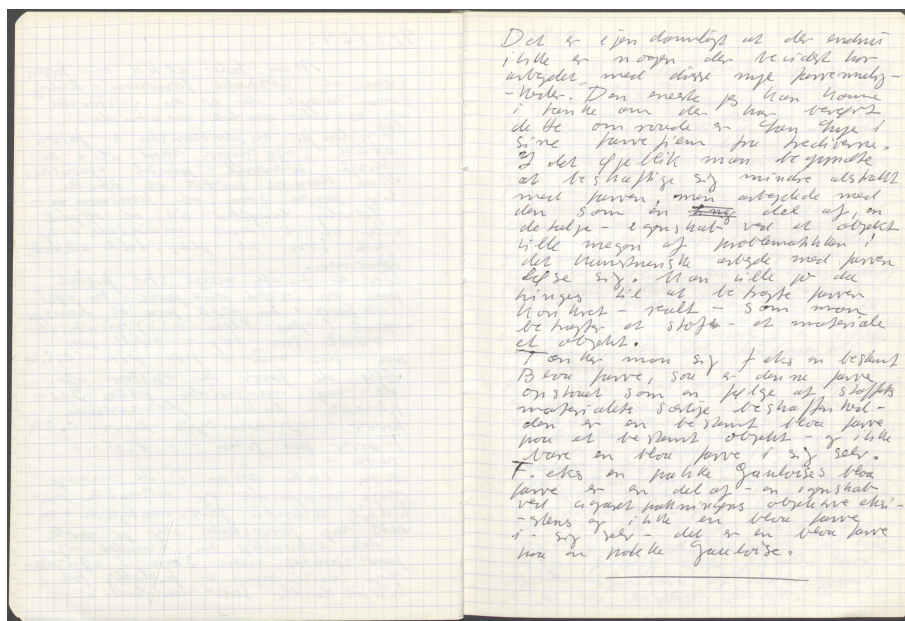 Det er ejendomligt at der endnu
ikke er nogen der bevidst har
arbejdet med disse nye farvemulig-
-heder. Den eneste jeg kan komme
i tanke om der har berørt
dette omraade er
sine farvepjem fra trediverne.
I det øjeblik man begyndte
at beskæftige sig mindre abstrakt
med farven, men arbejdede med
den som en del af, en
detalje - egenskab ved et objekt
ville megen af problematikken i
det kunstneriske arbejde med farven
løse sig. Man ville jo da
tvinges til at betragte farven
konkret - realt - som man
betragter et stof - et materiale
et objekt.
Tænker man sig f eks en bestemt
Blaa farve, saa er denne farve
opstaaet som en følge af stoffets
materialets særlige beskaffenhed -
den er en bestemt blaa farve
paa et bestemt objekt - og ikke
bare en blaa farve i sig selv.
F. eks en pakke Gauloises blaa
farve er en del af - en egenskab
ved cigaretpakningens objektive eksi-
-stens og ikke en blaa farve
i - sig selv - det er en blaa farve
paa en pakke Gauloise.